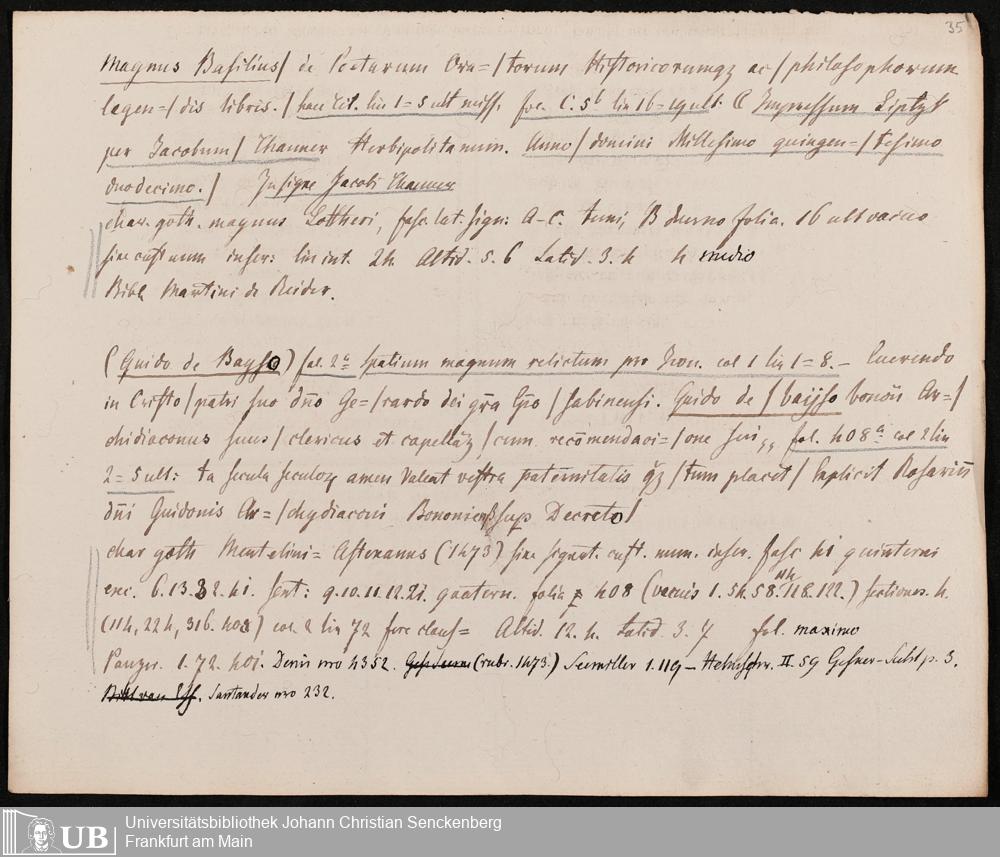 35
Magnus Basilius/ de Poetarum Ora=/torum Historicorumqꝫ ac/philosophorum
legen=/dis libris./ haec tit. lin 1=5 ult miss. fol. C.5ᵇ lin 16=19 ult. C Impressum Liptzk
per Jacobum/ Thanner Herbipolitanum. Anno/ domini Millesimo quingen=/tesimo
duodecimo./ Insigne Jacobi Thanner
char. goth. magnus Lottheri, fasc. lat. sign: A–C. terni, B duerno folia. 16 ult vacuo
sine cust num inscr: lin int. 24. Altid. 5. 6 Latid. 3. 4 4 medio
Bibl Martini de Reider.
(Guido de Baysso) fol. 2ᵃ Spatium magnum relictum pro Iron. col 1 lin 1=8. – Reverendo
in Cristo/patri suo dño Ge=/rardo dei gr̃a Ep̃o/sabinensi. Guido de/baijso bonoñ Ar=/
chidiaconus suus/clericus et capellãꝫ/cum recõmendaci=/one sui,, fol. 408ᵃ col 2 lin
2=5 ult: ta secula seculoꝝ amen Valeat vestra paternitatis qꝫ/tum placet/ Explicit Rosariũ
dñi Guidonis Ar=/chydiaconi Bononieñ/sup Decreto/
char goth Mentelini= Astexanus (1473) sine signat. cust. num. inscr. fasc 41 quinterni
exc. 6. 13. 32. 41. sext: 9. 10. 11. 12. 21. quatern. folia 408 (vacuis 1. 54. 58. 114 118. 122.) sectiones. 4
(114, 224, 316. 408) col. 2 lin 72 fere claus= Altid. 12. 4. Latid. 3. 7 fol. maximo
Panzer. 1. 72. 401. Denis nro 4352. (rubr. 1473.) Seemiller 1. 119 – Helmschr. II. 59 Gesner–Suhl p. 3.
Santander nro 232.
UB
Universitätsbibliothek Johann Christian Senckenberg
Frankfurt am Main